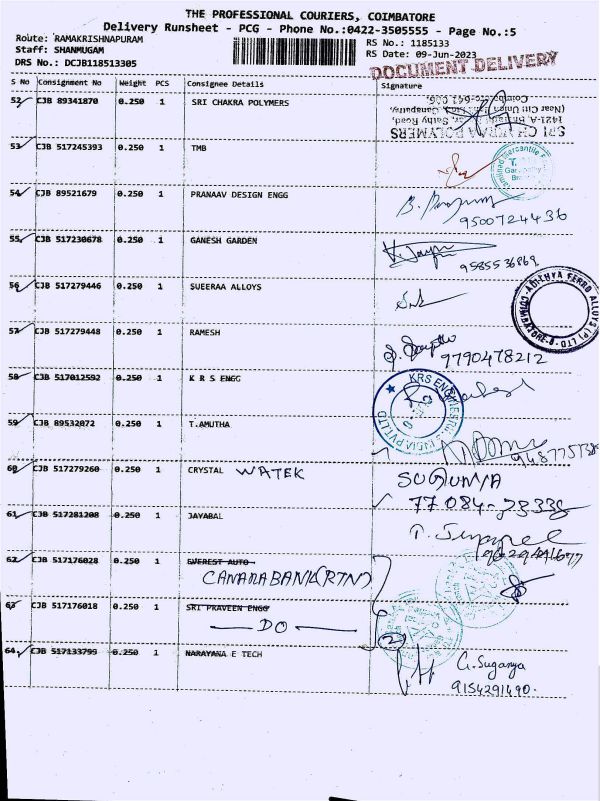 THE PROFESSIONAL COURIERS, COIMBATORE
Delivery Runsheet - PCG - Phone No.:0422-3505555 - Page No.:5
Route: RAMAKRISHNAPURAM
RS No.: 1185133
Staff: SHANMUGAM
RS Date: 09-Jun-2023
DRS No.: DCJB118513305
DOCUMENT DELIVERY
S No Consignment No Weight PCS Consignee Details Signature
52 CJB 89341870 0.250 1 SRI CHAKRA POLYMERS
SRI CHAKRA POLYMERS
53 CJB 517245393 0.250 1 TMB
54 CJB 89521679 0.250 1 PRANAAV DESIGN ENGG
9500724436
55 CJB 517230678 0.250 1 GANESH GARDEN
9585536869
56 CJB 517279446 0.250 1 SUEERAA ALLOYS
ADITHYA FERRO ALLOYS (P) LTD
COIMBATORE
57 CJB 517279448 0.250 1 RAMESH
9790478212
58 CJB 517012592 0.250 1 K R S ENGG
59 CJB 89532072 0.250 1 T.AMUTHA
60 CJB 517279260 0.250 1 CRYSTAL WATEK
SUGUNYA
61 CJB 517281208 0.250 1 JAYABAL
62 CJB 517176028 0.250 1 EVEREST AUTO
CANARABANK(RTN)
63 CJB 517176018 0.250 1 SRI PRAVEEN ENGG
DO
64 CJB 517133799 0.250 1 NARAYANA E TECH
G. Suganya
9154291490.